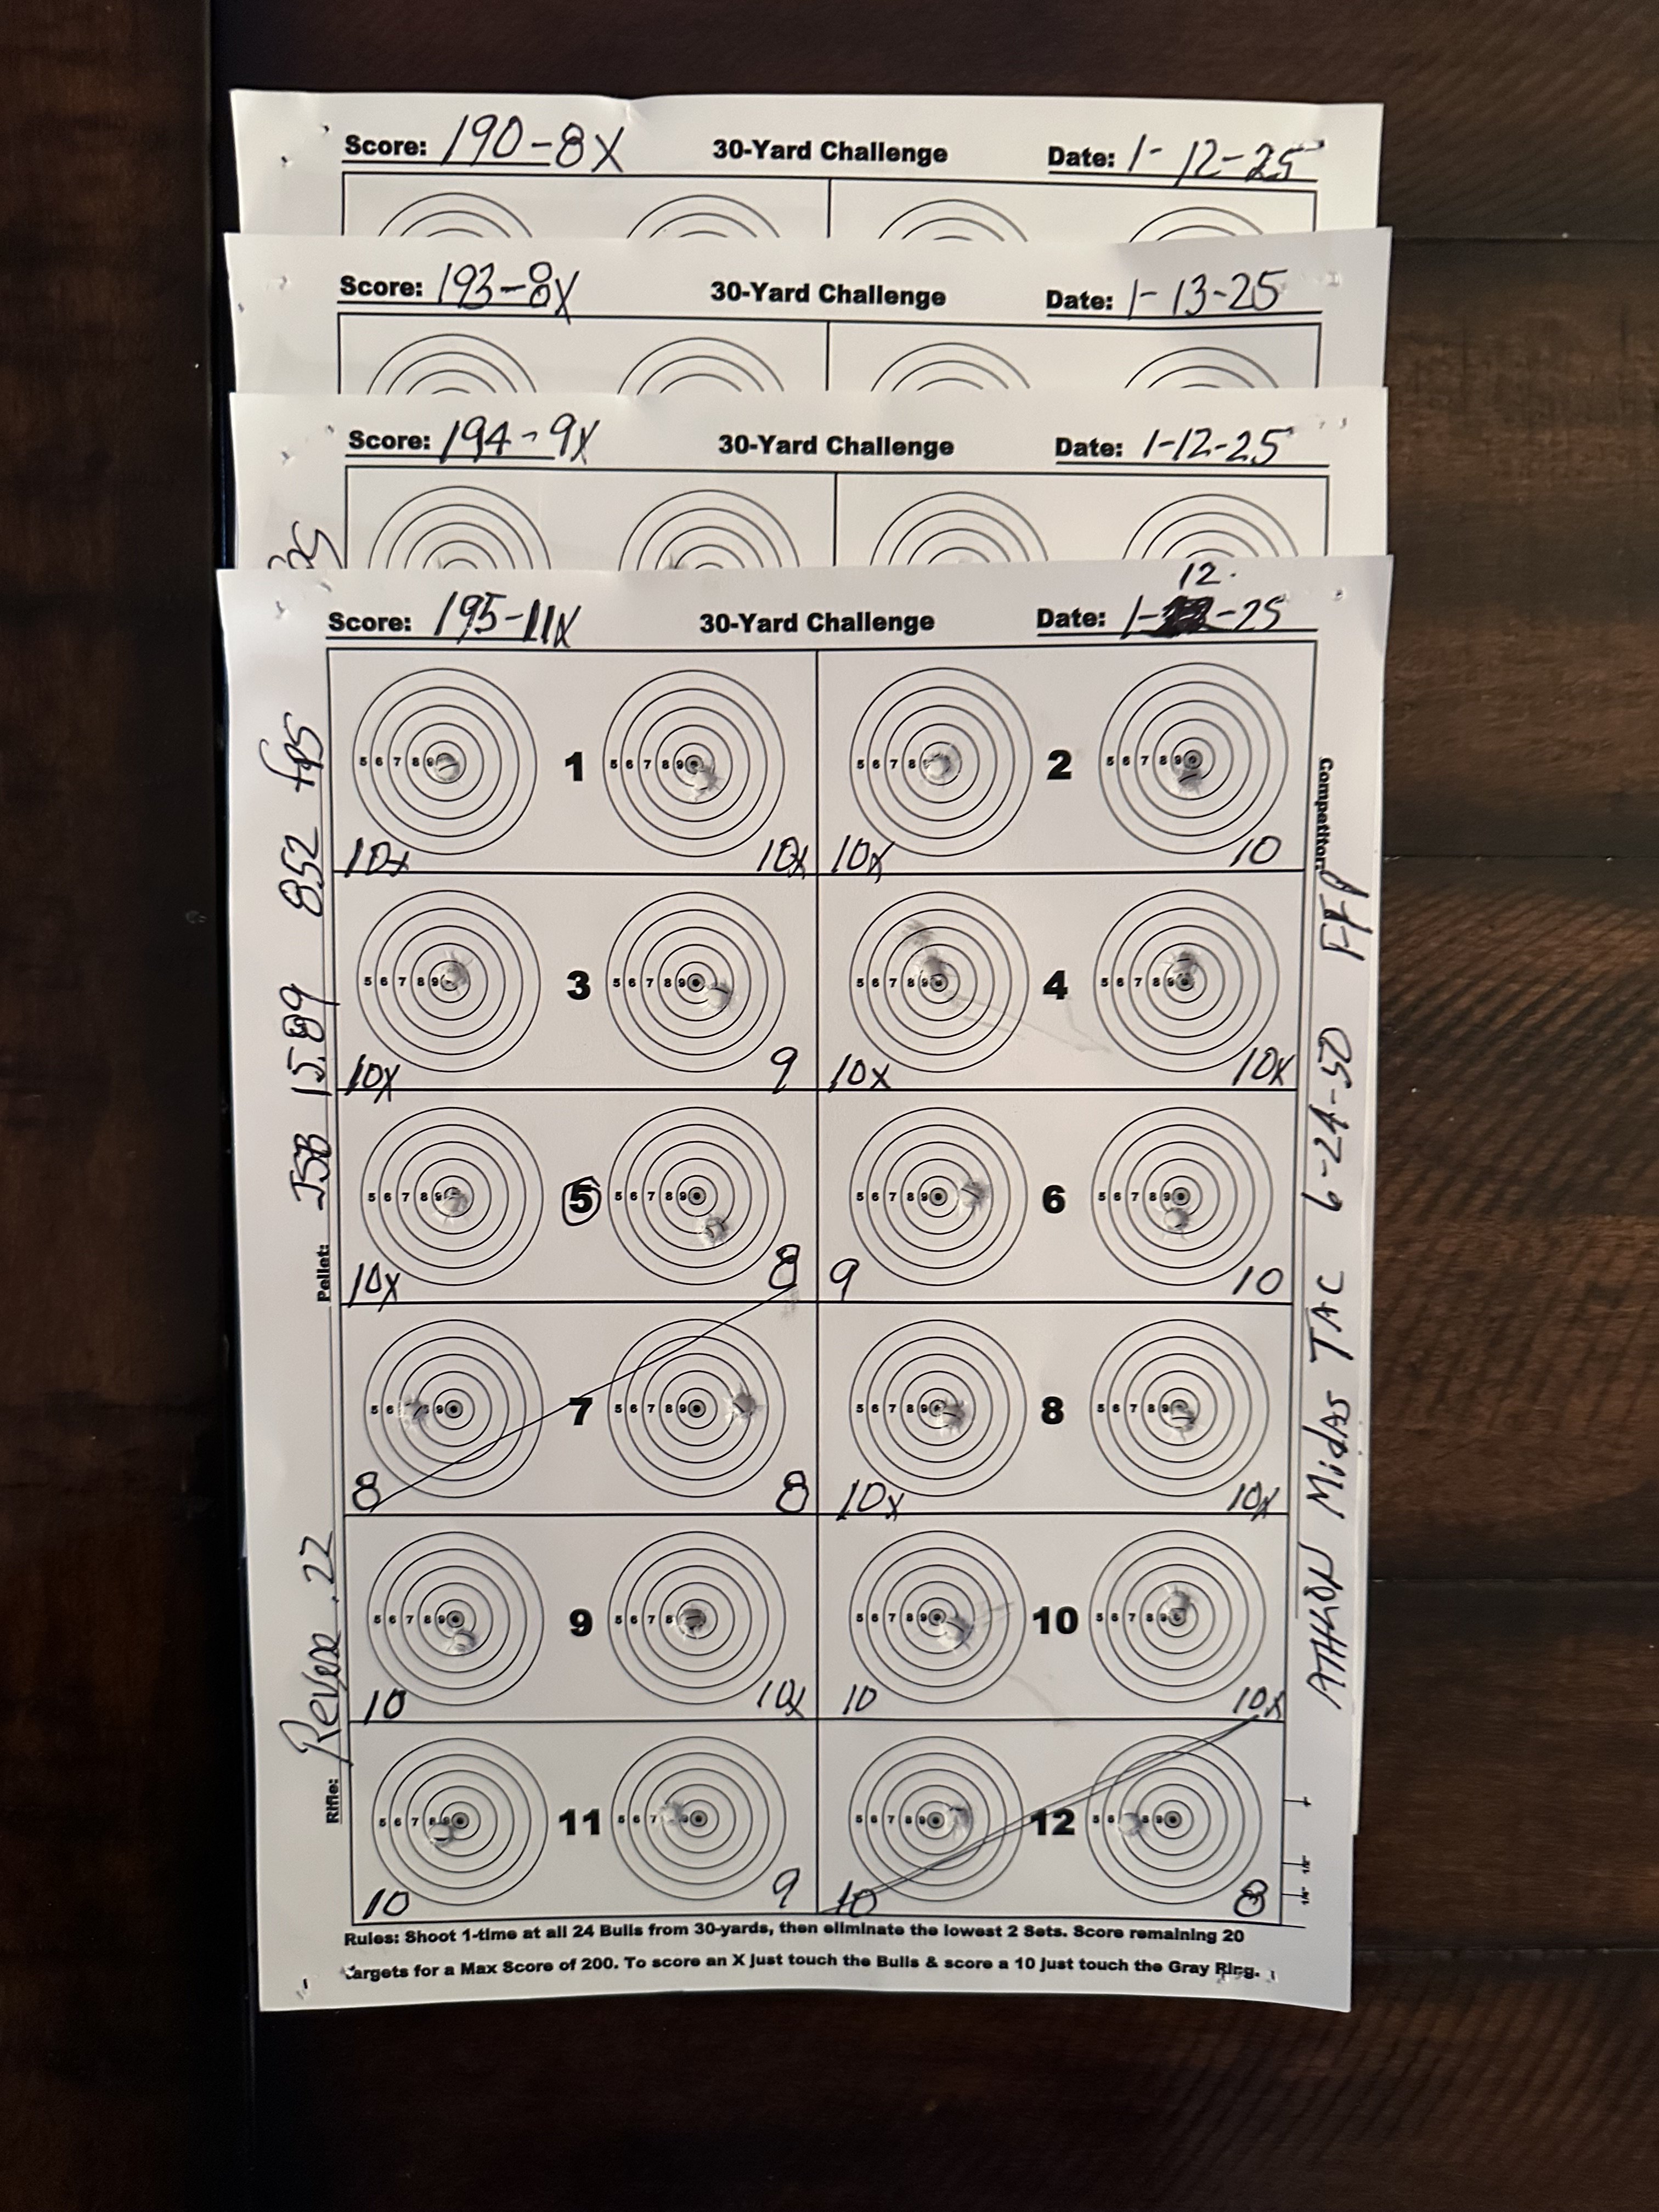 Score: 190-8X 30-Yard Challenge Date: 1-12-25
Score: 193-8X 30-Yard Challenge Date: 1-13-25
Score: 194-9X 30-Yard Challenge Date: 1-12-25
12.
Score: 195-11X 30-Yard Challenge Date: 1- -25
5 6 7 8 9 1 5 6 7 8 9
5 6 7 8 2 5 6 7 8 9
10x 10x 10x 10
5 6 7 8 9 3 5 6 7 8 9
5 6 7 8 9 4 5 6 7 8 9
10x 9 10x 10x
5 6 7 8 9 5 5 6 7 8 9
5 6 7 8 9 6 5 6 7 8 9
10x 8 9 10
5 6 9 7 5 6 7 8 9
5 6 7 8 9 8 5 6 7 8 9
8 8 10x 10x
5 6 7 8 9 9 5 6 7 8
5 6 7 8 9 10 5 6 7 8 9
10 10x 10 10x
5 6 7 8 9 11 5 6 7 9
5 6 7 8 9 12 5 6 8 9
10 9 10 8
Rules: Shoot 1-time at all 24 Bulls from 30-yards, then eliminate the lowest 2 Sets. Score remaining 20
Targets for a Max Score of 200. To score an X just touch the Bulls & score a 10 just touch the Gray Ring.
Rifle: .22 Pellet: JSB 15.89 852 fps
Competitor:
ATHLON Midas TAC 6-24-50 FFP